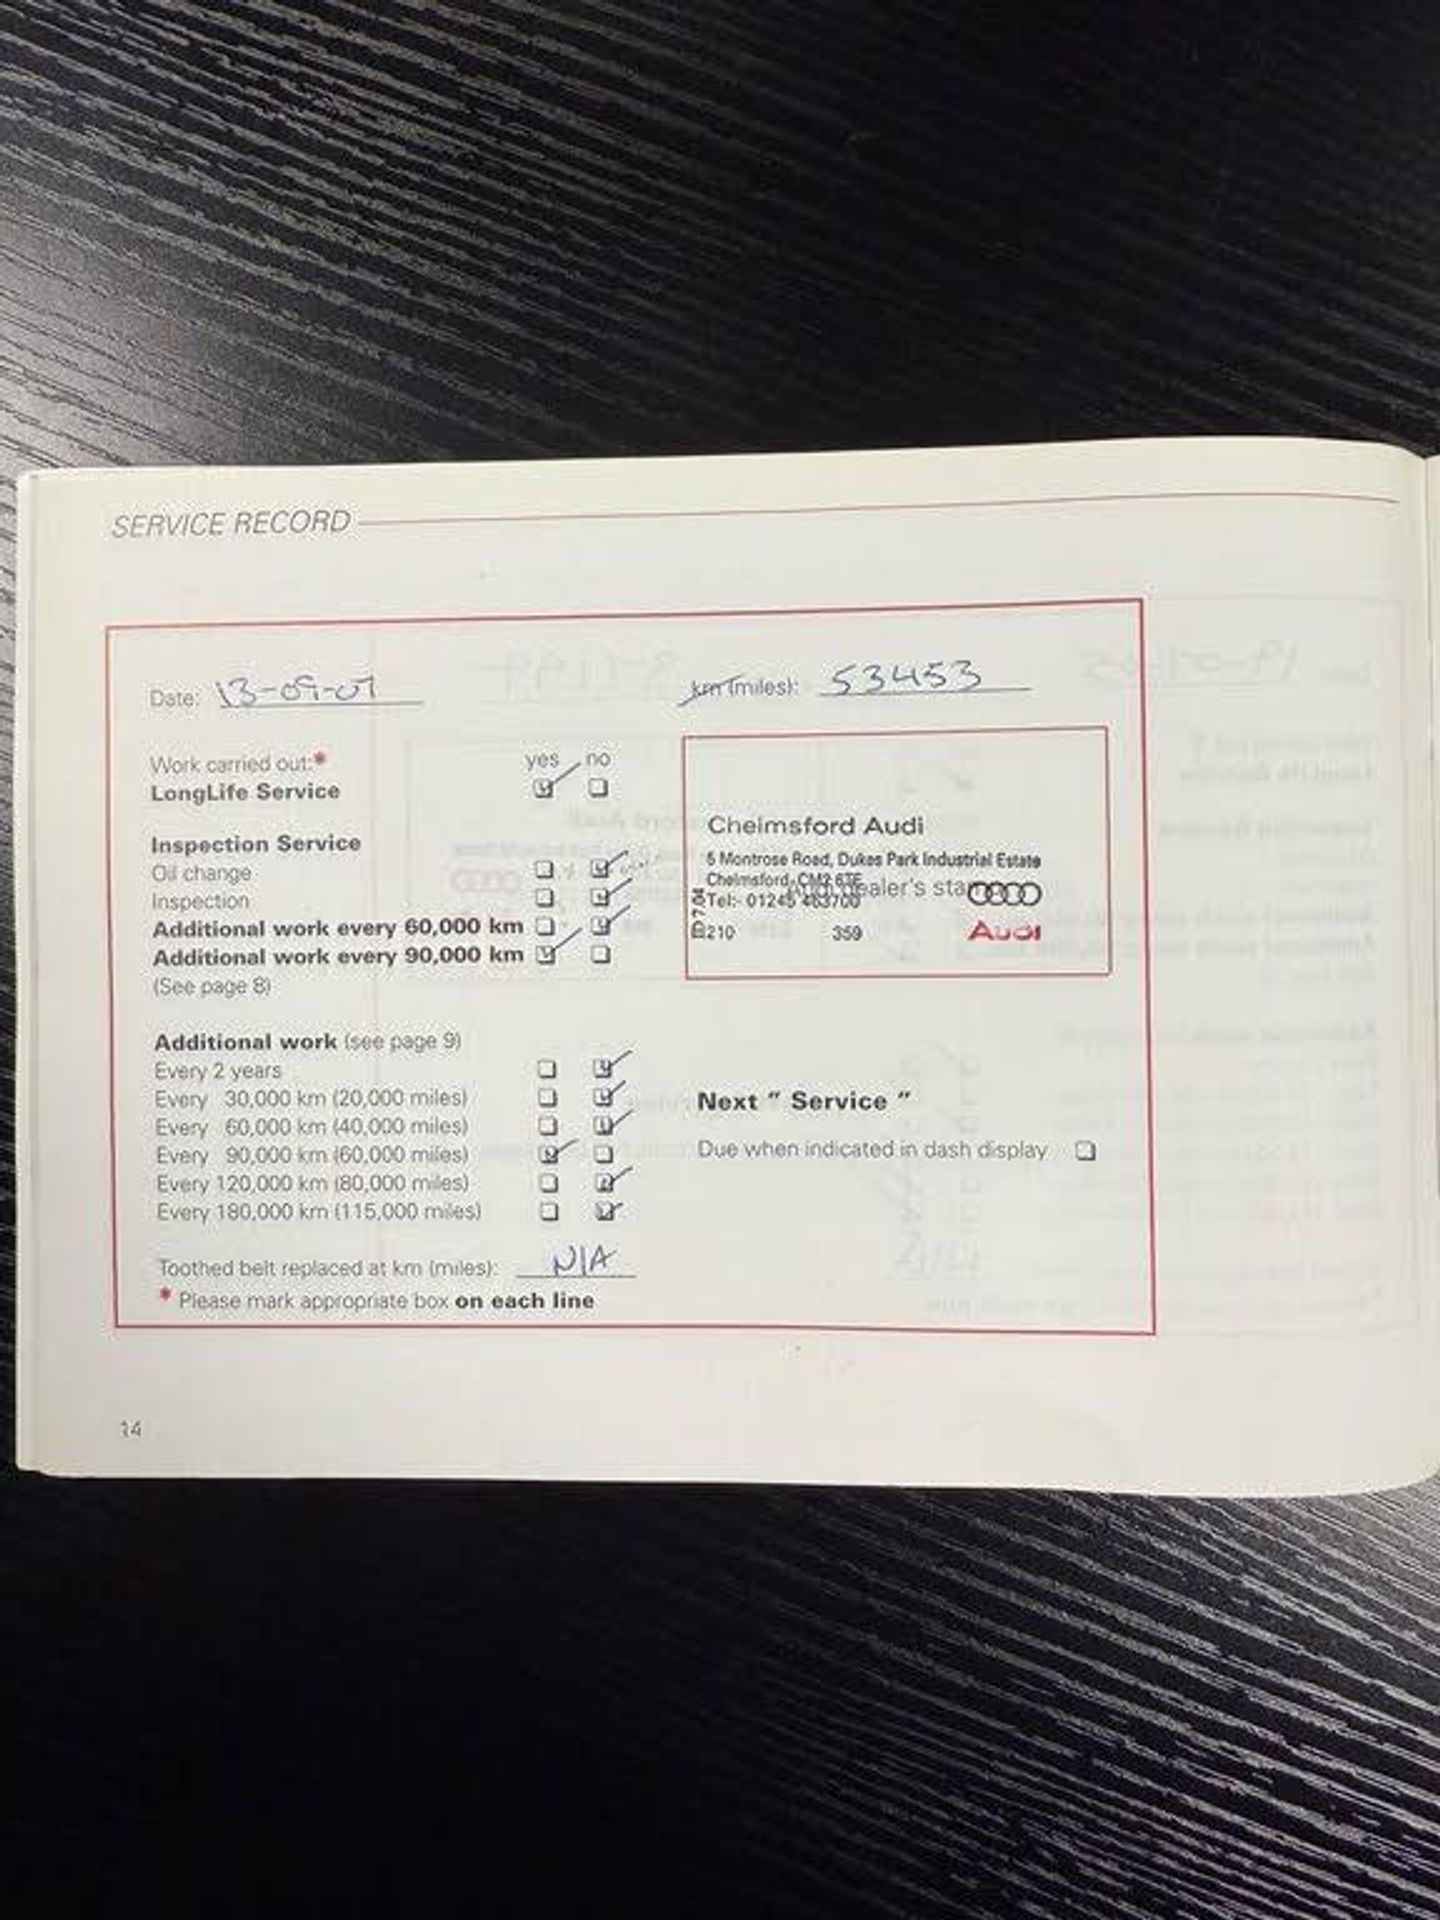 SERVICE RECORD
Date: 13-09-07
km (miles): 53453
Work carried out:* yes no
LongLife Service
Inspection Service
Oil change
Inspection
Additional work every 60,000 km
Additional work every 90,000 km
(See page 8)
Chelmsford Audi
5 Montrose Road, Dukes Park Industrial Estate
Chelmsford, CM2 6TE
Audi dealer's stamp
Tel:- 01245 463700
210 359
Audi
Additional work (see page 9)
Every 2 years
Every 30,000 km (20,000 miles)
Every 60,000 km (40,000 miles)
Every 90,000 km (60,000 miles)
Every 120,000 km (80,000 miles)
Every 180,000 km (115,000 miles)
Next " Service "
Due when indicated in dash display
Toothed belt replaced at km (miles): N/A
* Please mark appropriate box on each line
14